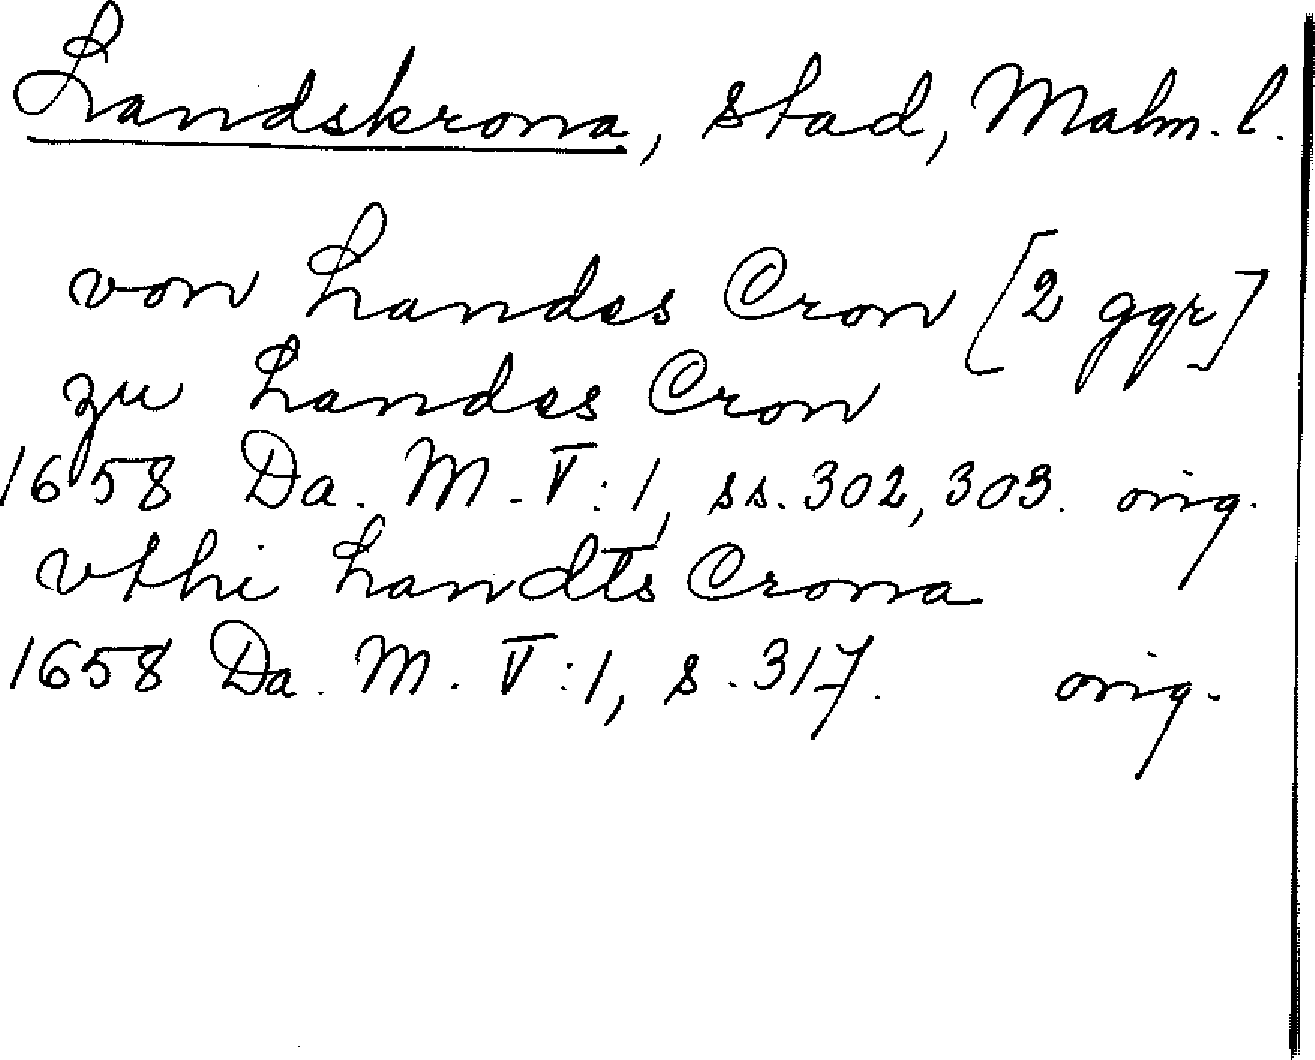 Landskrona, stad, Malm. l.
von Landes Cron [2 ggr]
zu Landes Cron
1658 Da. M. V:1, ss. 302, 303. orig.
vthi Landts Crona
1658 Da. M. V:1, s. 317. orig.